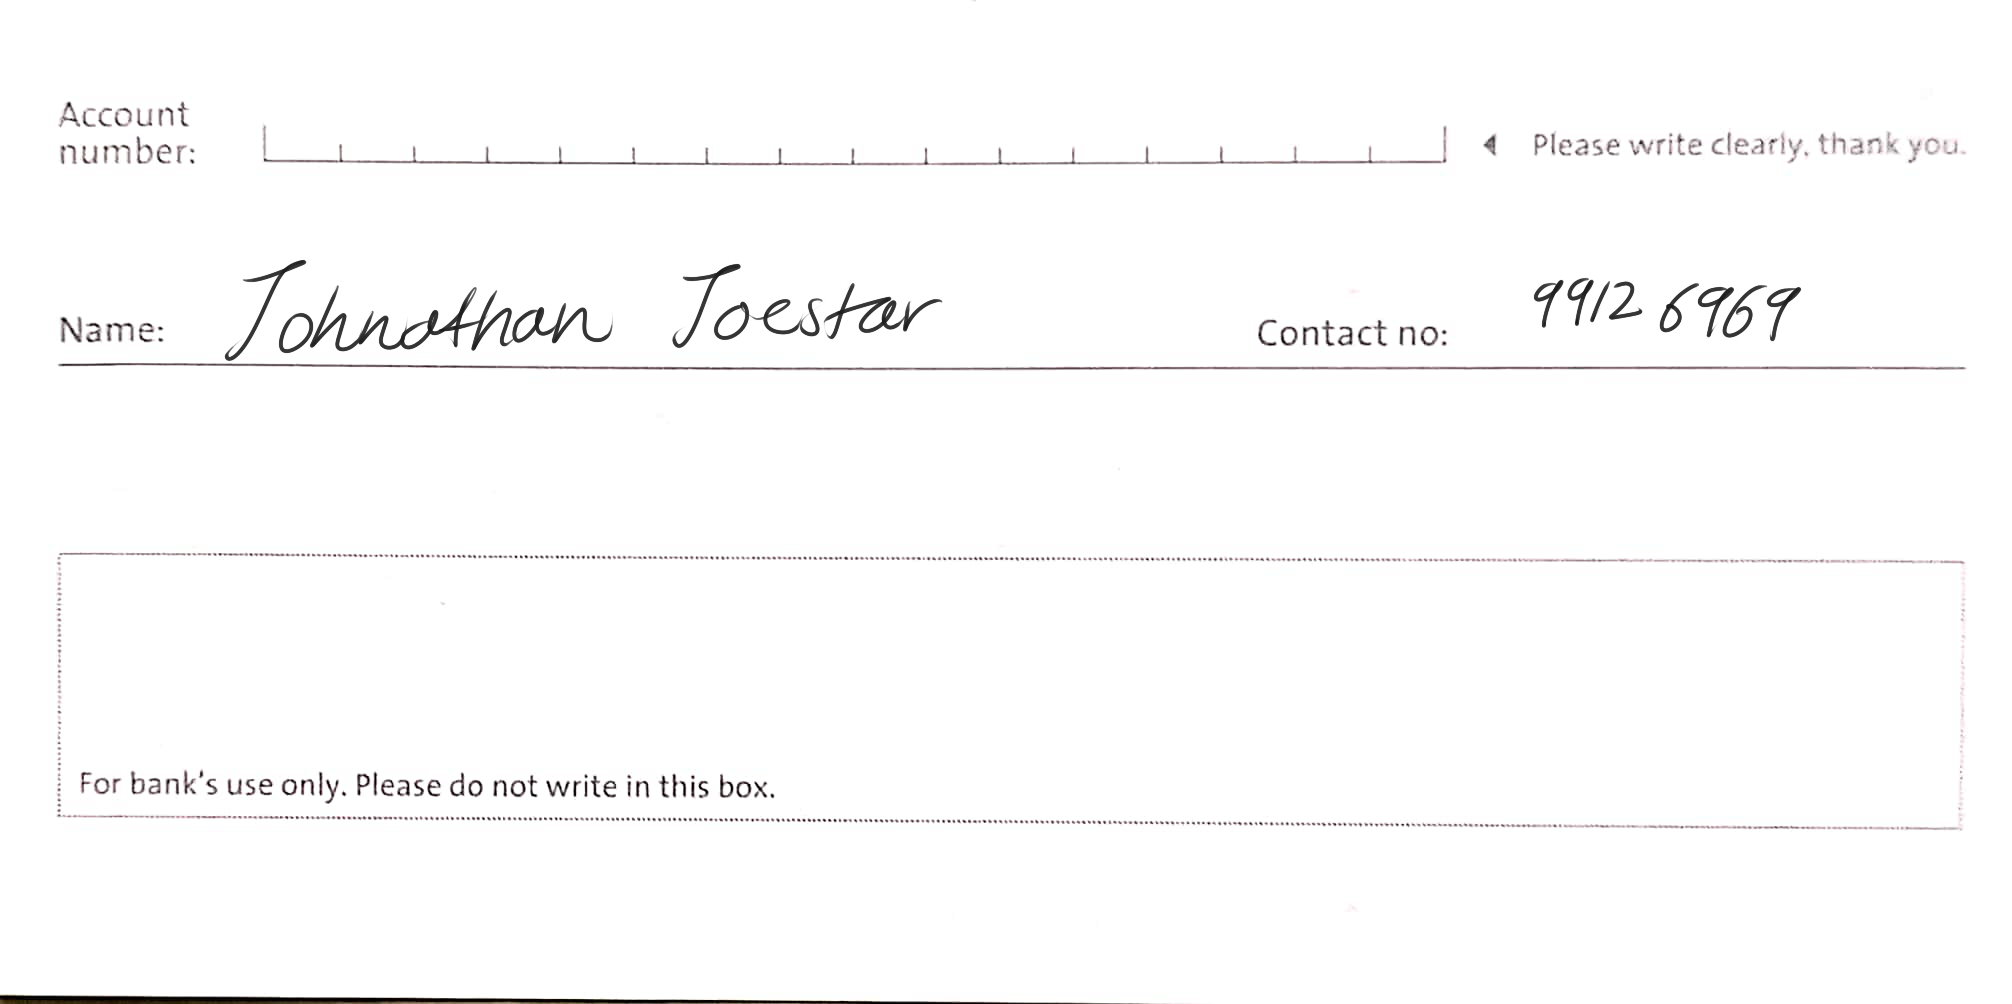 Account
number:
◄ Please write clearly, thank you.
Name: Johnathan Joestar Contact no: 9912 6969
For bank's use only. Please do not write in this box.